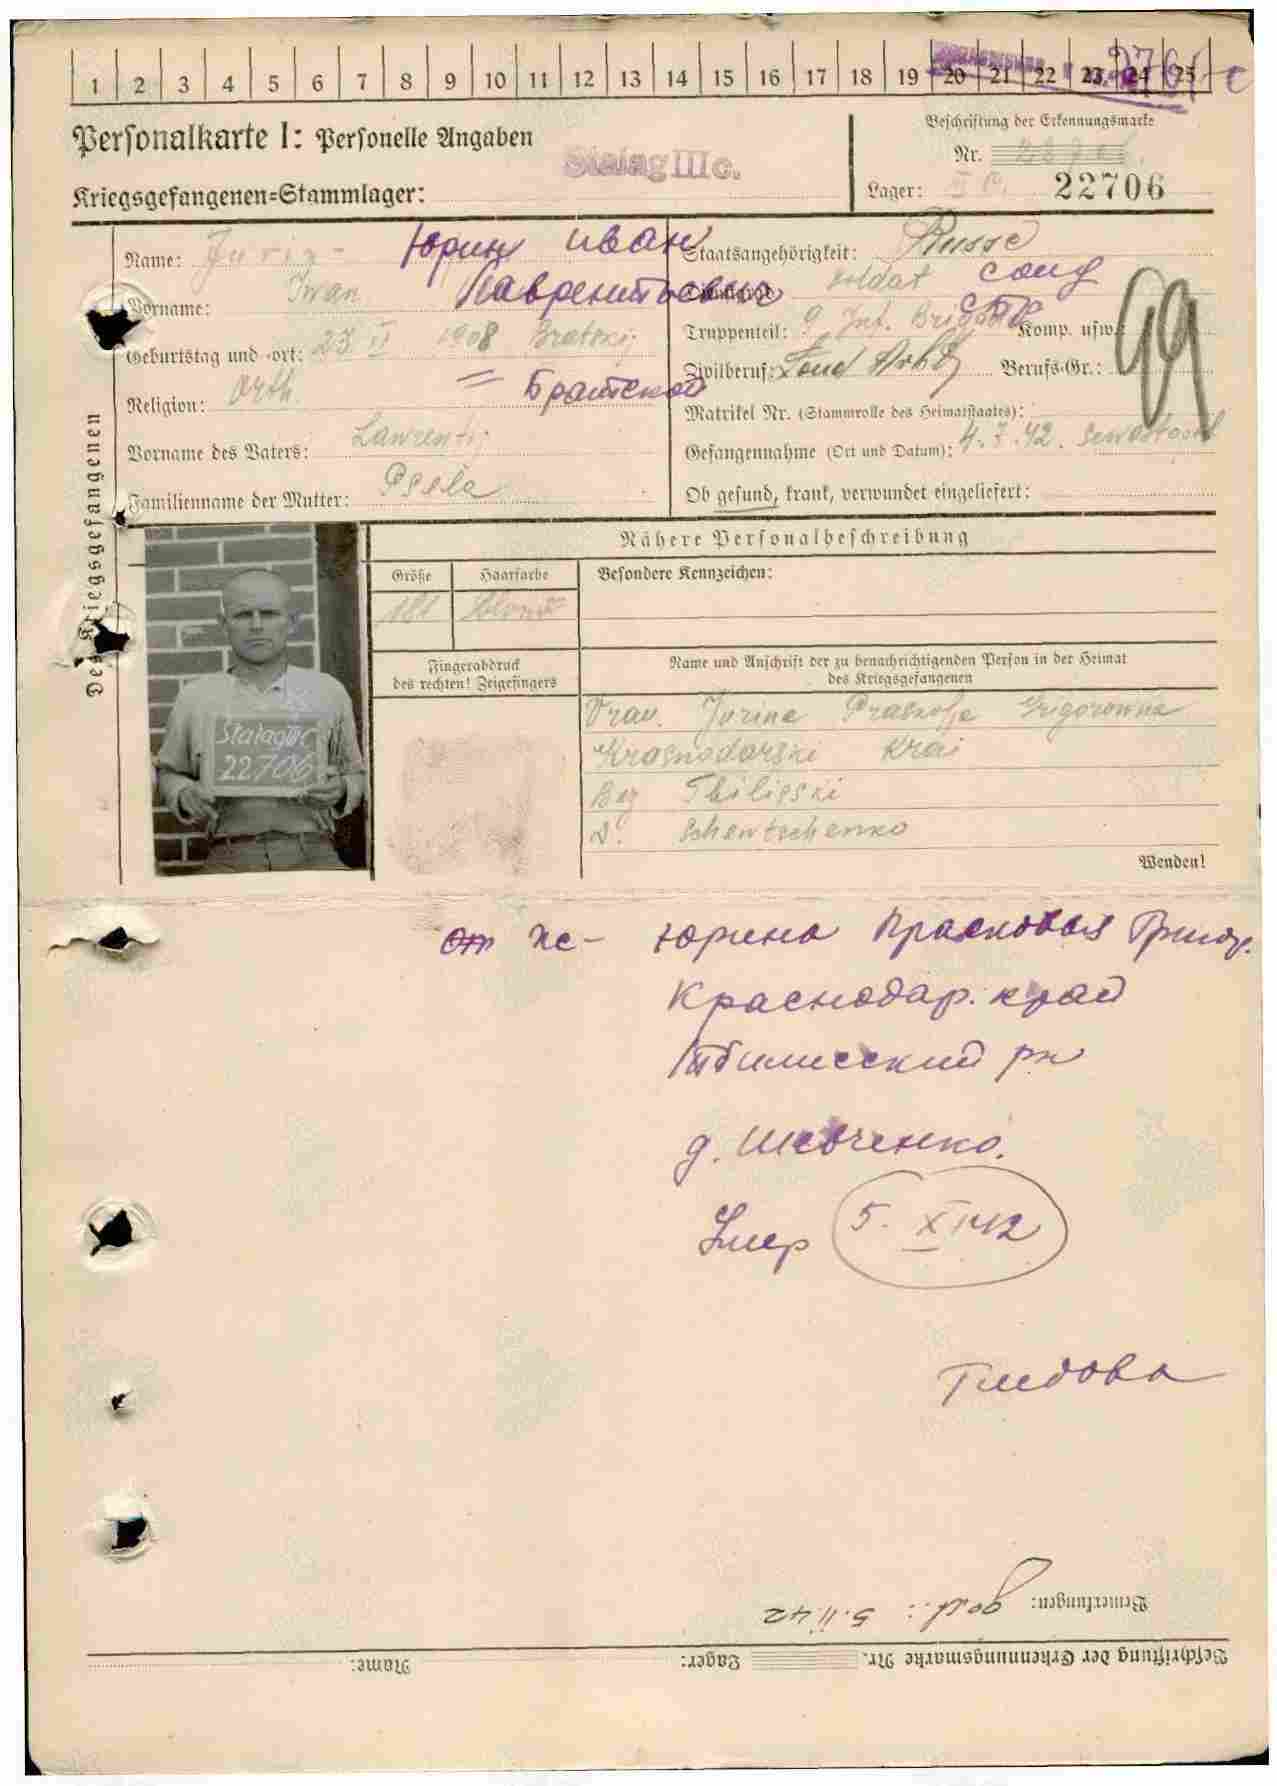 1 2 3 4 5 6 7 8 9 10 11 12 13 14 15 16 17 18 19 20 21 22 23 24 25
Personalkarte I: Personelle Angaben
Beschriftung der Erkennungsmarke
Stalag III c.
Nr.
Kriegsgefangenen=Stammlager:
Lager: 22706
Name: Jurin Юрин Иван
Staatsangehörigkeit: Russe
Лаврентьевич
Vorname: Iwan
soldat солд
Truppenteil: 9 Inf. Brigade Komp. usw.:
Geburtstag und -ort: 23 II 1908 Bratskij
Zivilberuf: Land Arb Berufs-Gr.:
99
Religion: Orth. = Братской
Matrikel Nr. (Stammrolle des Heimatstaates):
Vorname des Vaters: Lawrentij
Gefangennahme (Ort und Datum): 4.7.42. Sewastopol
Familienname der Mutter: Psela
Ob gesund, krank, verwundet eingeliefert:
Des Kriegsgefangenen
Nähere Personalbeschreibung
Größe Haarfarbe Besondere Kennzeichen:
181 blond
Fingerabdruck
des rechten! Zeigefingers
Name und Anschrift der zu benachrichtigenden Person in der Heimat
des Kriegsgefangenen
Stalag III C
22706
Frau. Jurina Praskofja Grigorowna
Krasnodarski Krai
Bez Tbilisski
D. Schewtschenko
Wenden!
же- Юрина Прасковья Григор.
Краснодар. край
Тбилисский рн
д. Шевченко.
Умер 5. XI 42
Глебова
Bemerkungen: gest.: 5.11.42
Beschriftung der Erkennungsmarke Nr. Lager: Name: